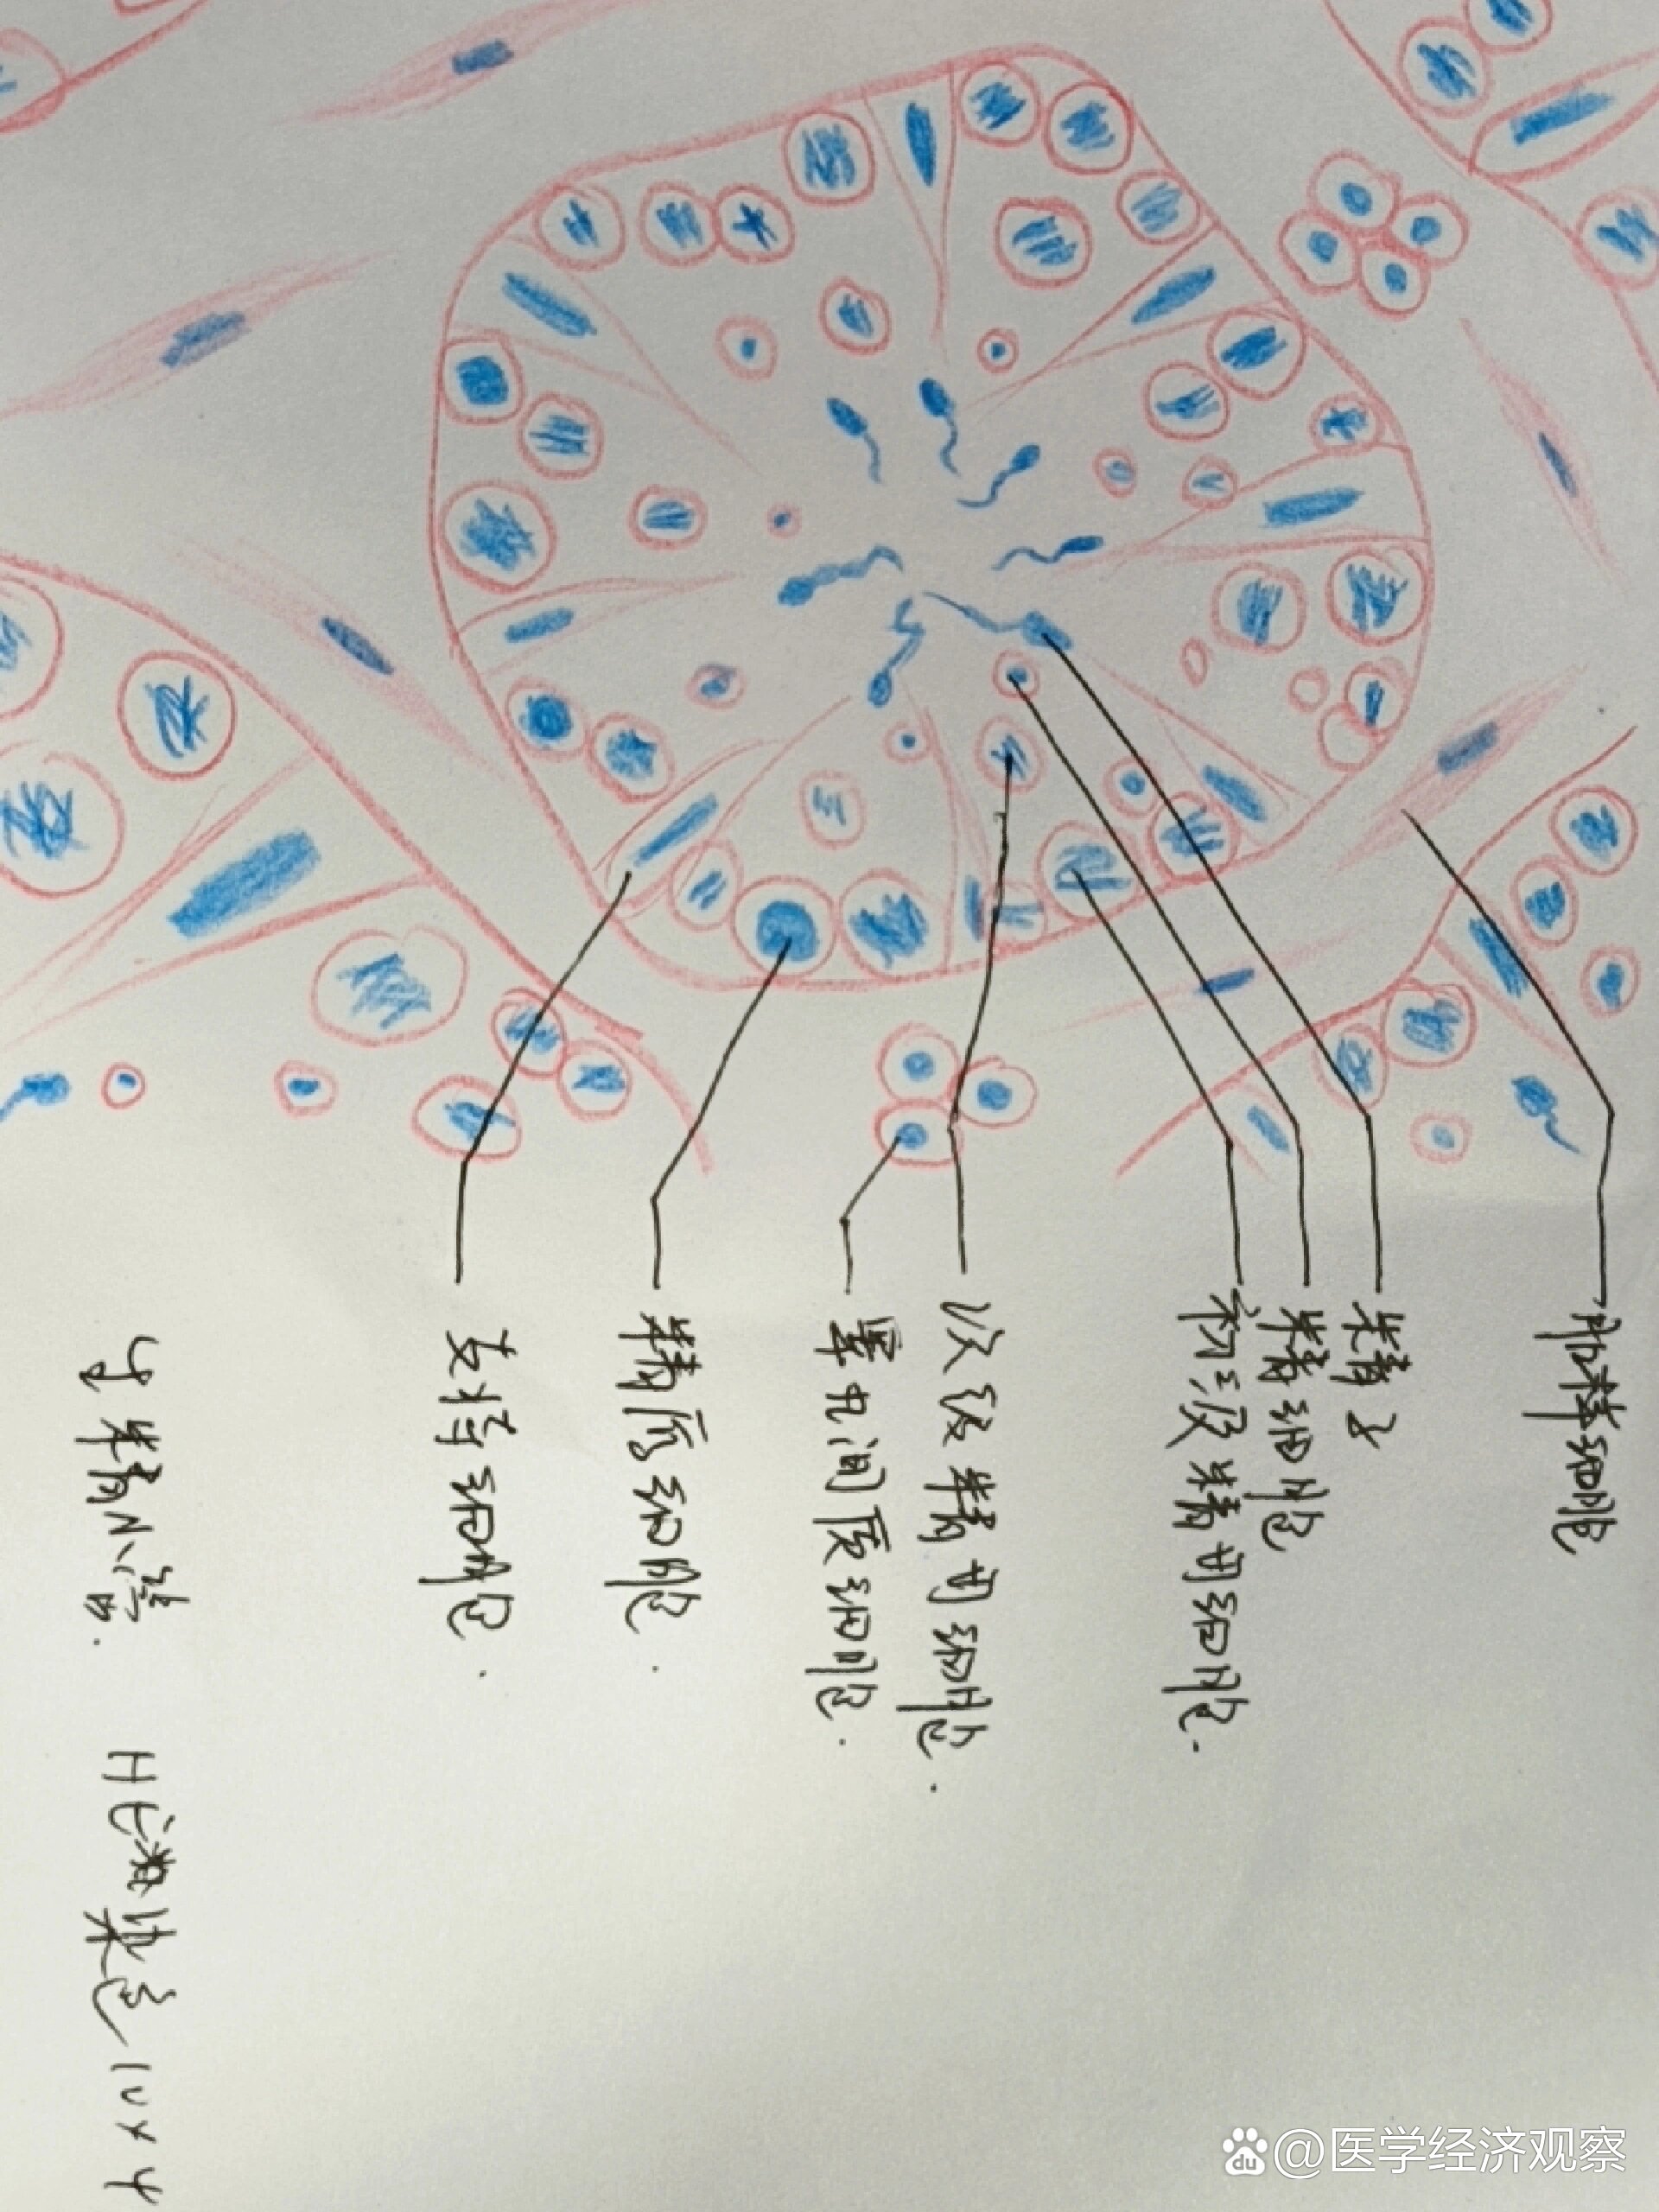 肌样细胞
精子
精细胞
初级精母细胞.
次级精母细胞.
睾丸间质细胞.
精原细胞.
支持细胞.
生精小管. HE染色 10×4
du @医学经济观察